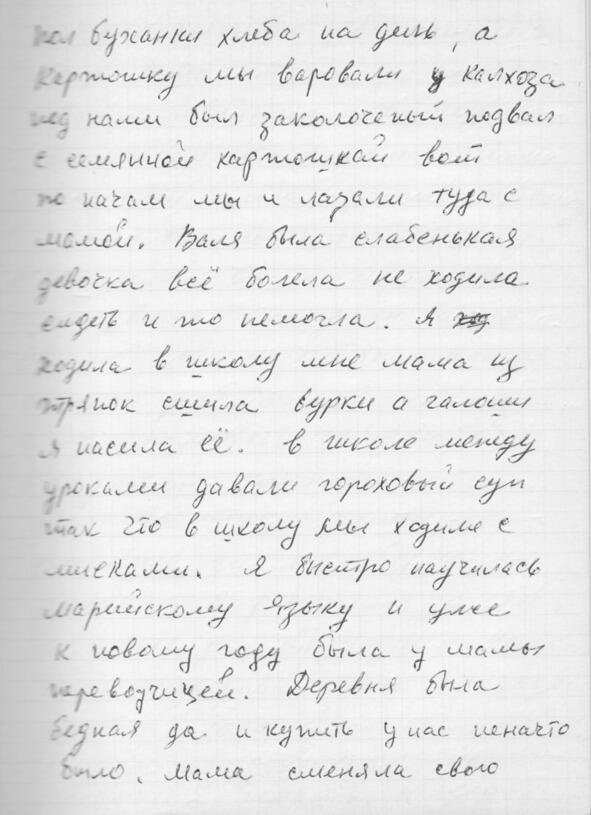 пол буханки хлеба на день, а
картошку мы варовали у калхоза
под нами был заколоченый подвал
с семянной картошкай вот
по начам мы и лазали туда с
мамой. Валя была слабенькая
девочка всё болела не ходила
сидеть и то немогла. Я
ходила в школу мне мама из
тряпок сшила бурки а галоши
я насила её. в школе между
уроками давали гороховый суп
так что в школу мы ходили с
мисками. Я быстро научилась
марийскому языку и уже
к новому году была у мамы
переводчицей. Деревня была
бедная да и купить у нас неначто
было. Мама сменяла свою